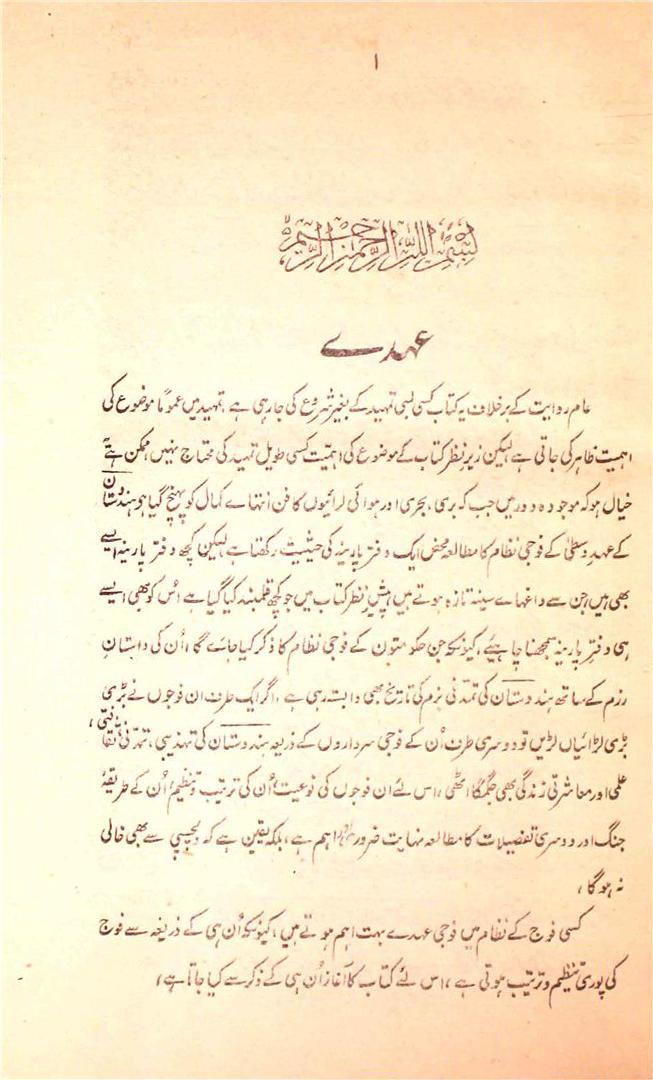 ۱
بِسْمِ اللّٰهِ الرَّحْمٰنِ الرَّحِيْمِ
عہدے
عام روایت کے برخلاف یہ کتاب کسی لمبی تمہید کے بغیر شروع کی جارہی ہے، تمہید میں عموماً موضوع کی
اہمیت ظاہر کی جاتی ہے لیکن زیر نظر کتاب کے موضوع کی اہمیّت کسی طویل تمہید کی محتاج نہیں، ممکن ہے یہ
خیال ہو کہ موجودہ دور میں جب کہ بری، بحری اور ہوائی لرائیوں کا فن انتہاے کمال کو پہنچ گیا ہو ہندوستان
کے عہدِ وسطیٰ کے فوجی نظام کا مطالعہ محض ایک دفتر پارینہ کی حیثیت رکھتا ہے لیکن کچھ دفتر پارینہ ایسے
بھی ہیں جن سے داغہاے سینہ تازہ ہوتے ہیں، پیشِ نظر کتاب میں جو کچھ قلمبند کیا گیا ہے اُس کو بھی ایسے
ہی دفترِ پارینہ سمجھنا چاہیئے، کیونکہ جن حکومتوں کے فوجی نظام کا ذکر کیا جائے گا، اُن کی داستانِ
رزم کے ساتھ ہندوستان کی تمدّنی بزم کی تاریخ بھی وابستہ رہی ہے، اگر ایک طرف ان فوجوں نے بڑی
بڑی لڑائیاں لڑیں تو دوسری طرف اُن کے فوجی سرداروں کے ذریعہ ہندوستان کی تہذیبی، تمدّنی، ثقافتی،
علمی اور معاشرتی زندگی بھی جگمگا اٹھی، اس لئے ان فوجوں کی نوعیت، اُن کی ترتیب و تنظیم، اُن کے طریقۂ
جنگ اور دوسری تفصیلات کا مطالعہ نہایت ضروری اور اہم ہے، بلکہ یقین ہے کہ دلچسپی سے بھی خالی
نہ ہوگا،
کسی فوج کے نظام میں فوجی عہدے بہت اہم ہوتے ہیں، کیونکہ اُن ہی کے ذریعہ سے فوج
کی پوری تنظیم و ترتیب ہوتی ہے، اس لئے کتاب کا آغاز اُن ہی کے ذکر سے کیا جاتا ہے،